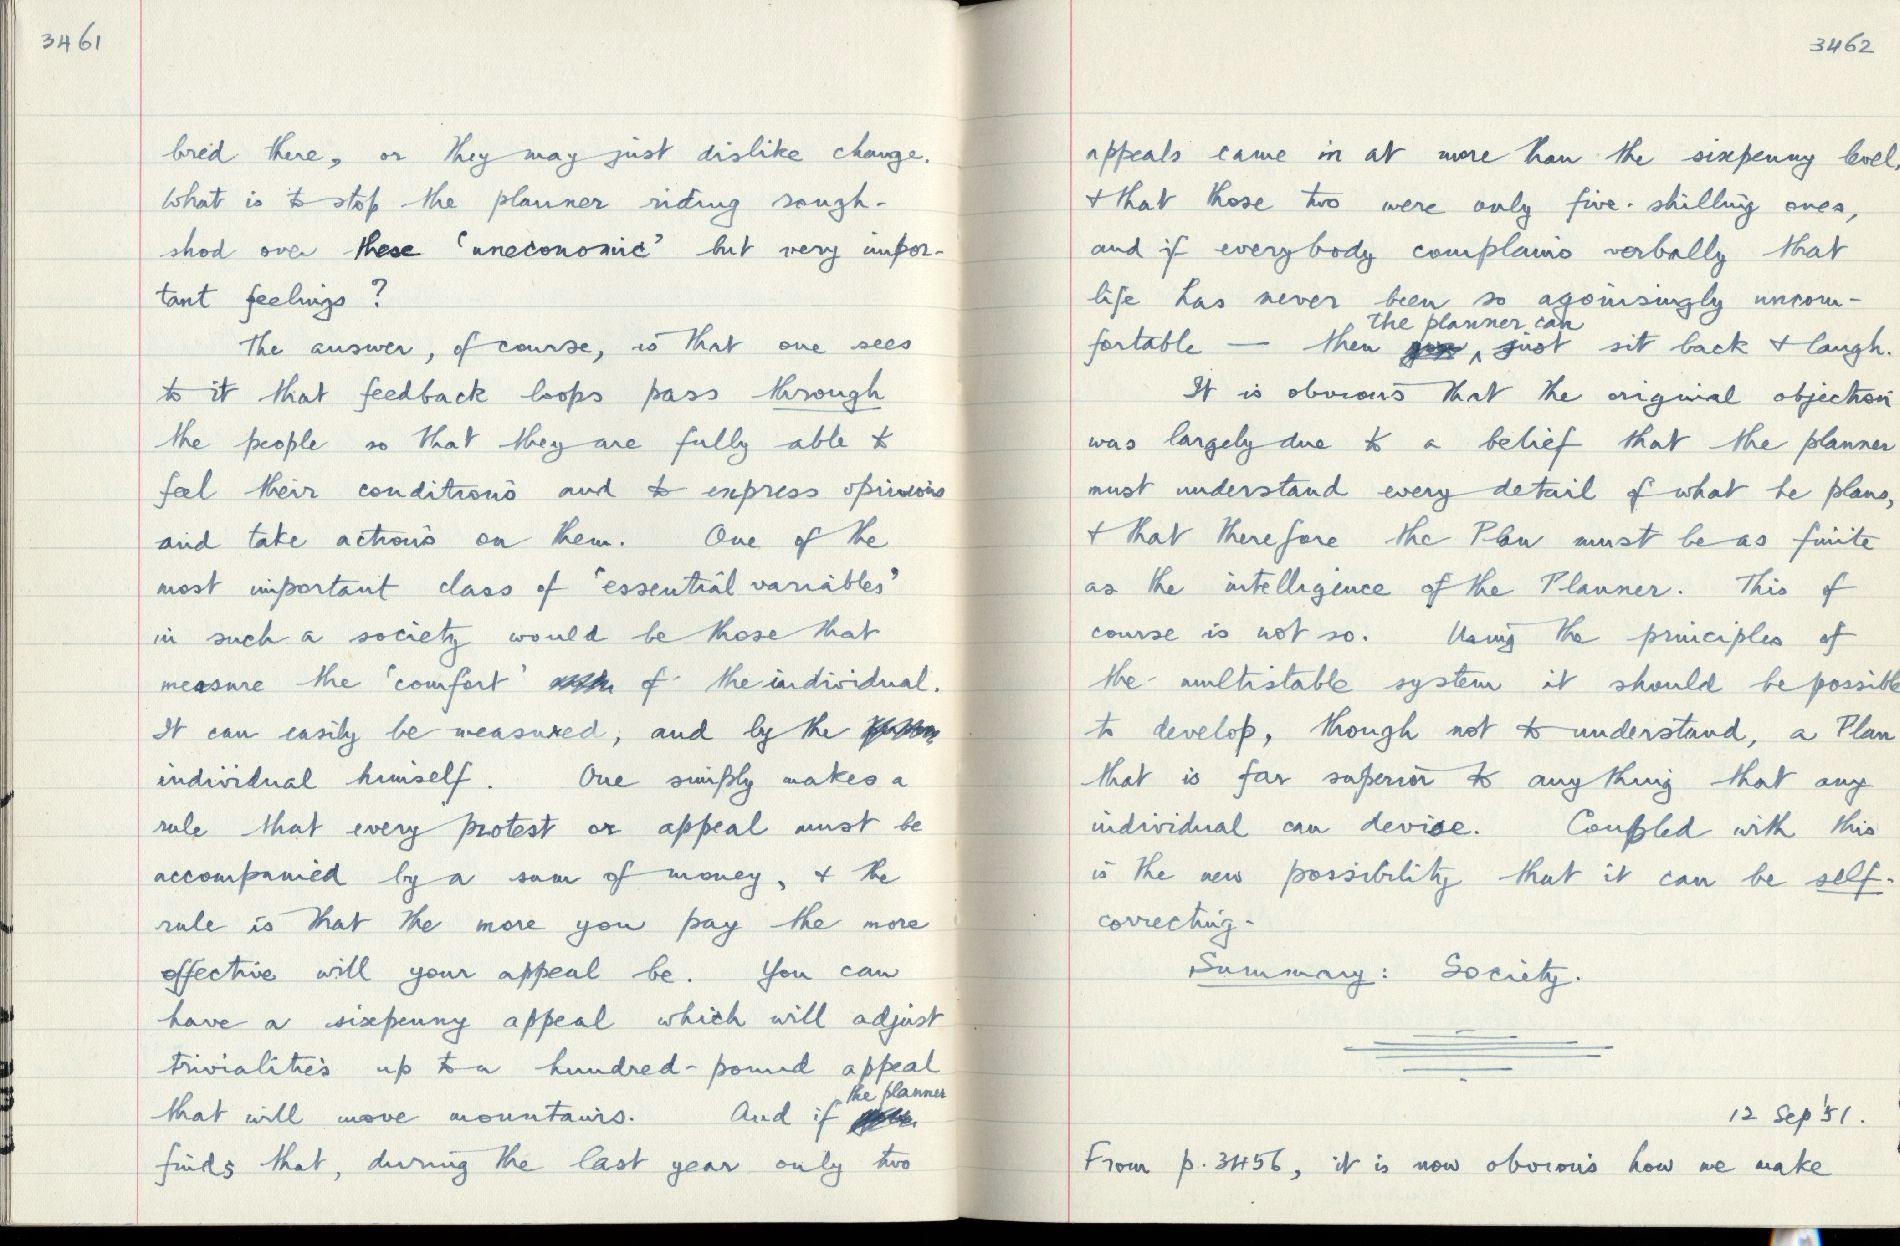 3461
bred there, or they may just dislike change.
What is to stop the planner riding rough-
shod over these 'uneconomic' but very impor-
tant feelings?
The answer, of course, is that one sees
to it that feedback loops pass through
the people so that they are fully able to
feel their conditions and to express opinions
and take actions on them. One of the
most important class of 'essential variables'
in such a society would be those that
measure the 'comfort' of the individual.
It can easily be measured, and by the
individual himself. One simply makes a
rule that every protest or appeal must be
accompanied by a sum of money, & the
rule is that the more you pay the more
effective will your appeal be. You can
have a sixpenny appeal which will adjust
trivialities up to a hundred-pound appeal
that will move mountains. And if the planner
finds that, during the last year only two
3462
appeals came in at more than the sixpenny level,
& that those two were only five-shilling ones,
and if everybody complains verbally that
life has never been so agonisingly uncom-
fortable — then the planner can just sit back & laugh.
It is obvious that the original objection
was largely due to a belief that the planner
must understand every detail of what he plans,
& that therefore the Plan must be as finite
as the intelligence of the Planner. This of
course is not so. Using the principles of
the multistable system it should be possible
to develop, though not to understand, a Plan
that is far superior to anything that any
individual can devise. Coupled with this
is the new possibility that it can be self-
correcting.
Summary: Society.
12 Sep '51.
From p. 3456, it is now obvious how we make